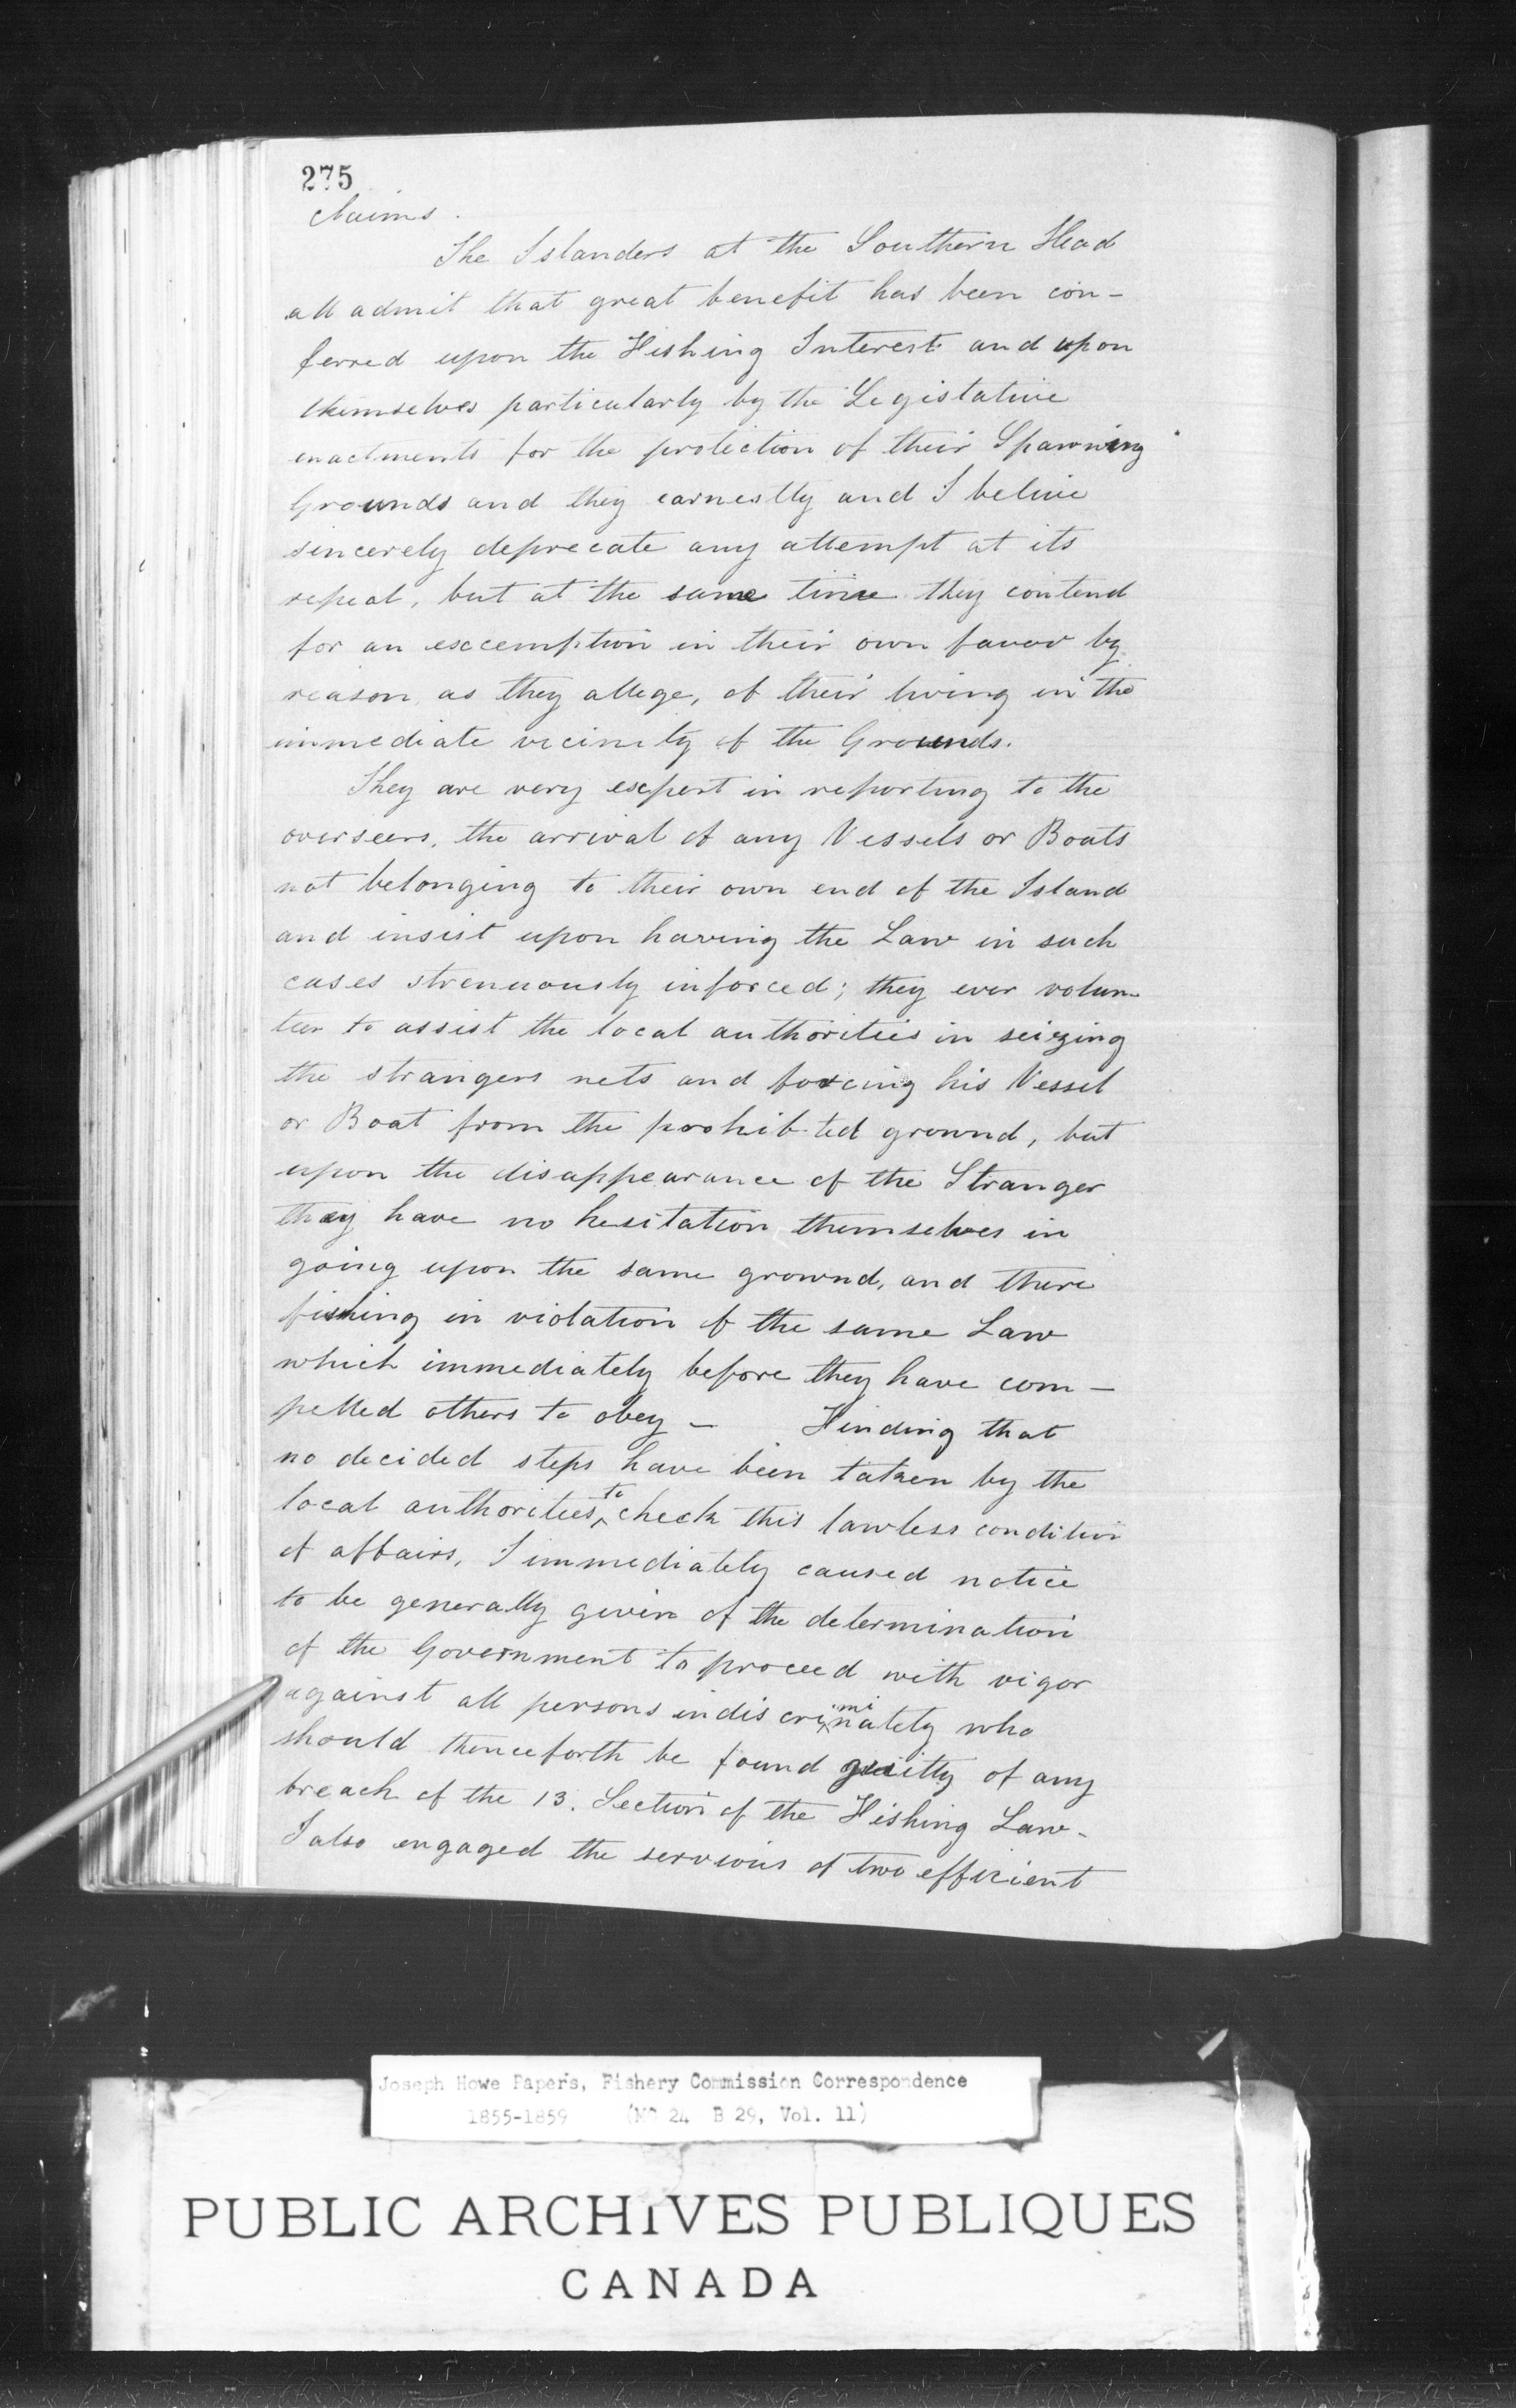 275
claims.
The Islanders at the Southern Head
all admit that great benefit has been con-
ferred upon the Fishing Interest and upon
themselves particularly by the Legislative
enactments for the protection of their Spawning
Grounds and they earnestly and I belive
sincerely deprecate any attempt at its
repeal, but at the same time they contend
for an excemption in their own favor by
reason as they allege, of their living in the
immediate vicinity of the Grounds.
They are very expert in reporting to the
overseers, the arrival of any Vessels or Boats
not belonging to their own end of the Island
and insist upon having the Law in such
cases strenuously inforced; they ever volun-
teer to assist the local authorities in seizing
the strangers nets and forcing his Vessel
or Boat from the prohibited ground, but
upon the disappearance of the Stranger
they have no hesitation themselves in
going upon the same ground, and there
fishing in violation of the same Law
which immediately before they have com-
pelled others to obey - Finding that
no decided steps have been taken by the
local authorities to check this lawless condition
of affairs, I immediately caused notice
to be generally given of the determination
of the Government to proceed with vigor
against all persons indiscriminately who
should thenceforth be found guilty of any
breach of the 13. Section of the Fishing Law-
I also engaged the services of two efficient
Joseph Howe Papers, Fishery Commission Correspondence
1855-1859 (MG 24 B 29, Vol. 11)
PUBLIC ARCHIVES PUBLIQUES
CANADA